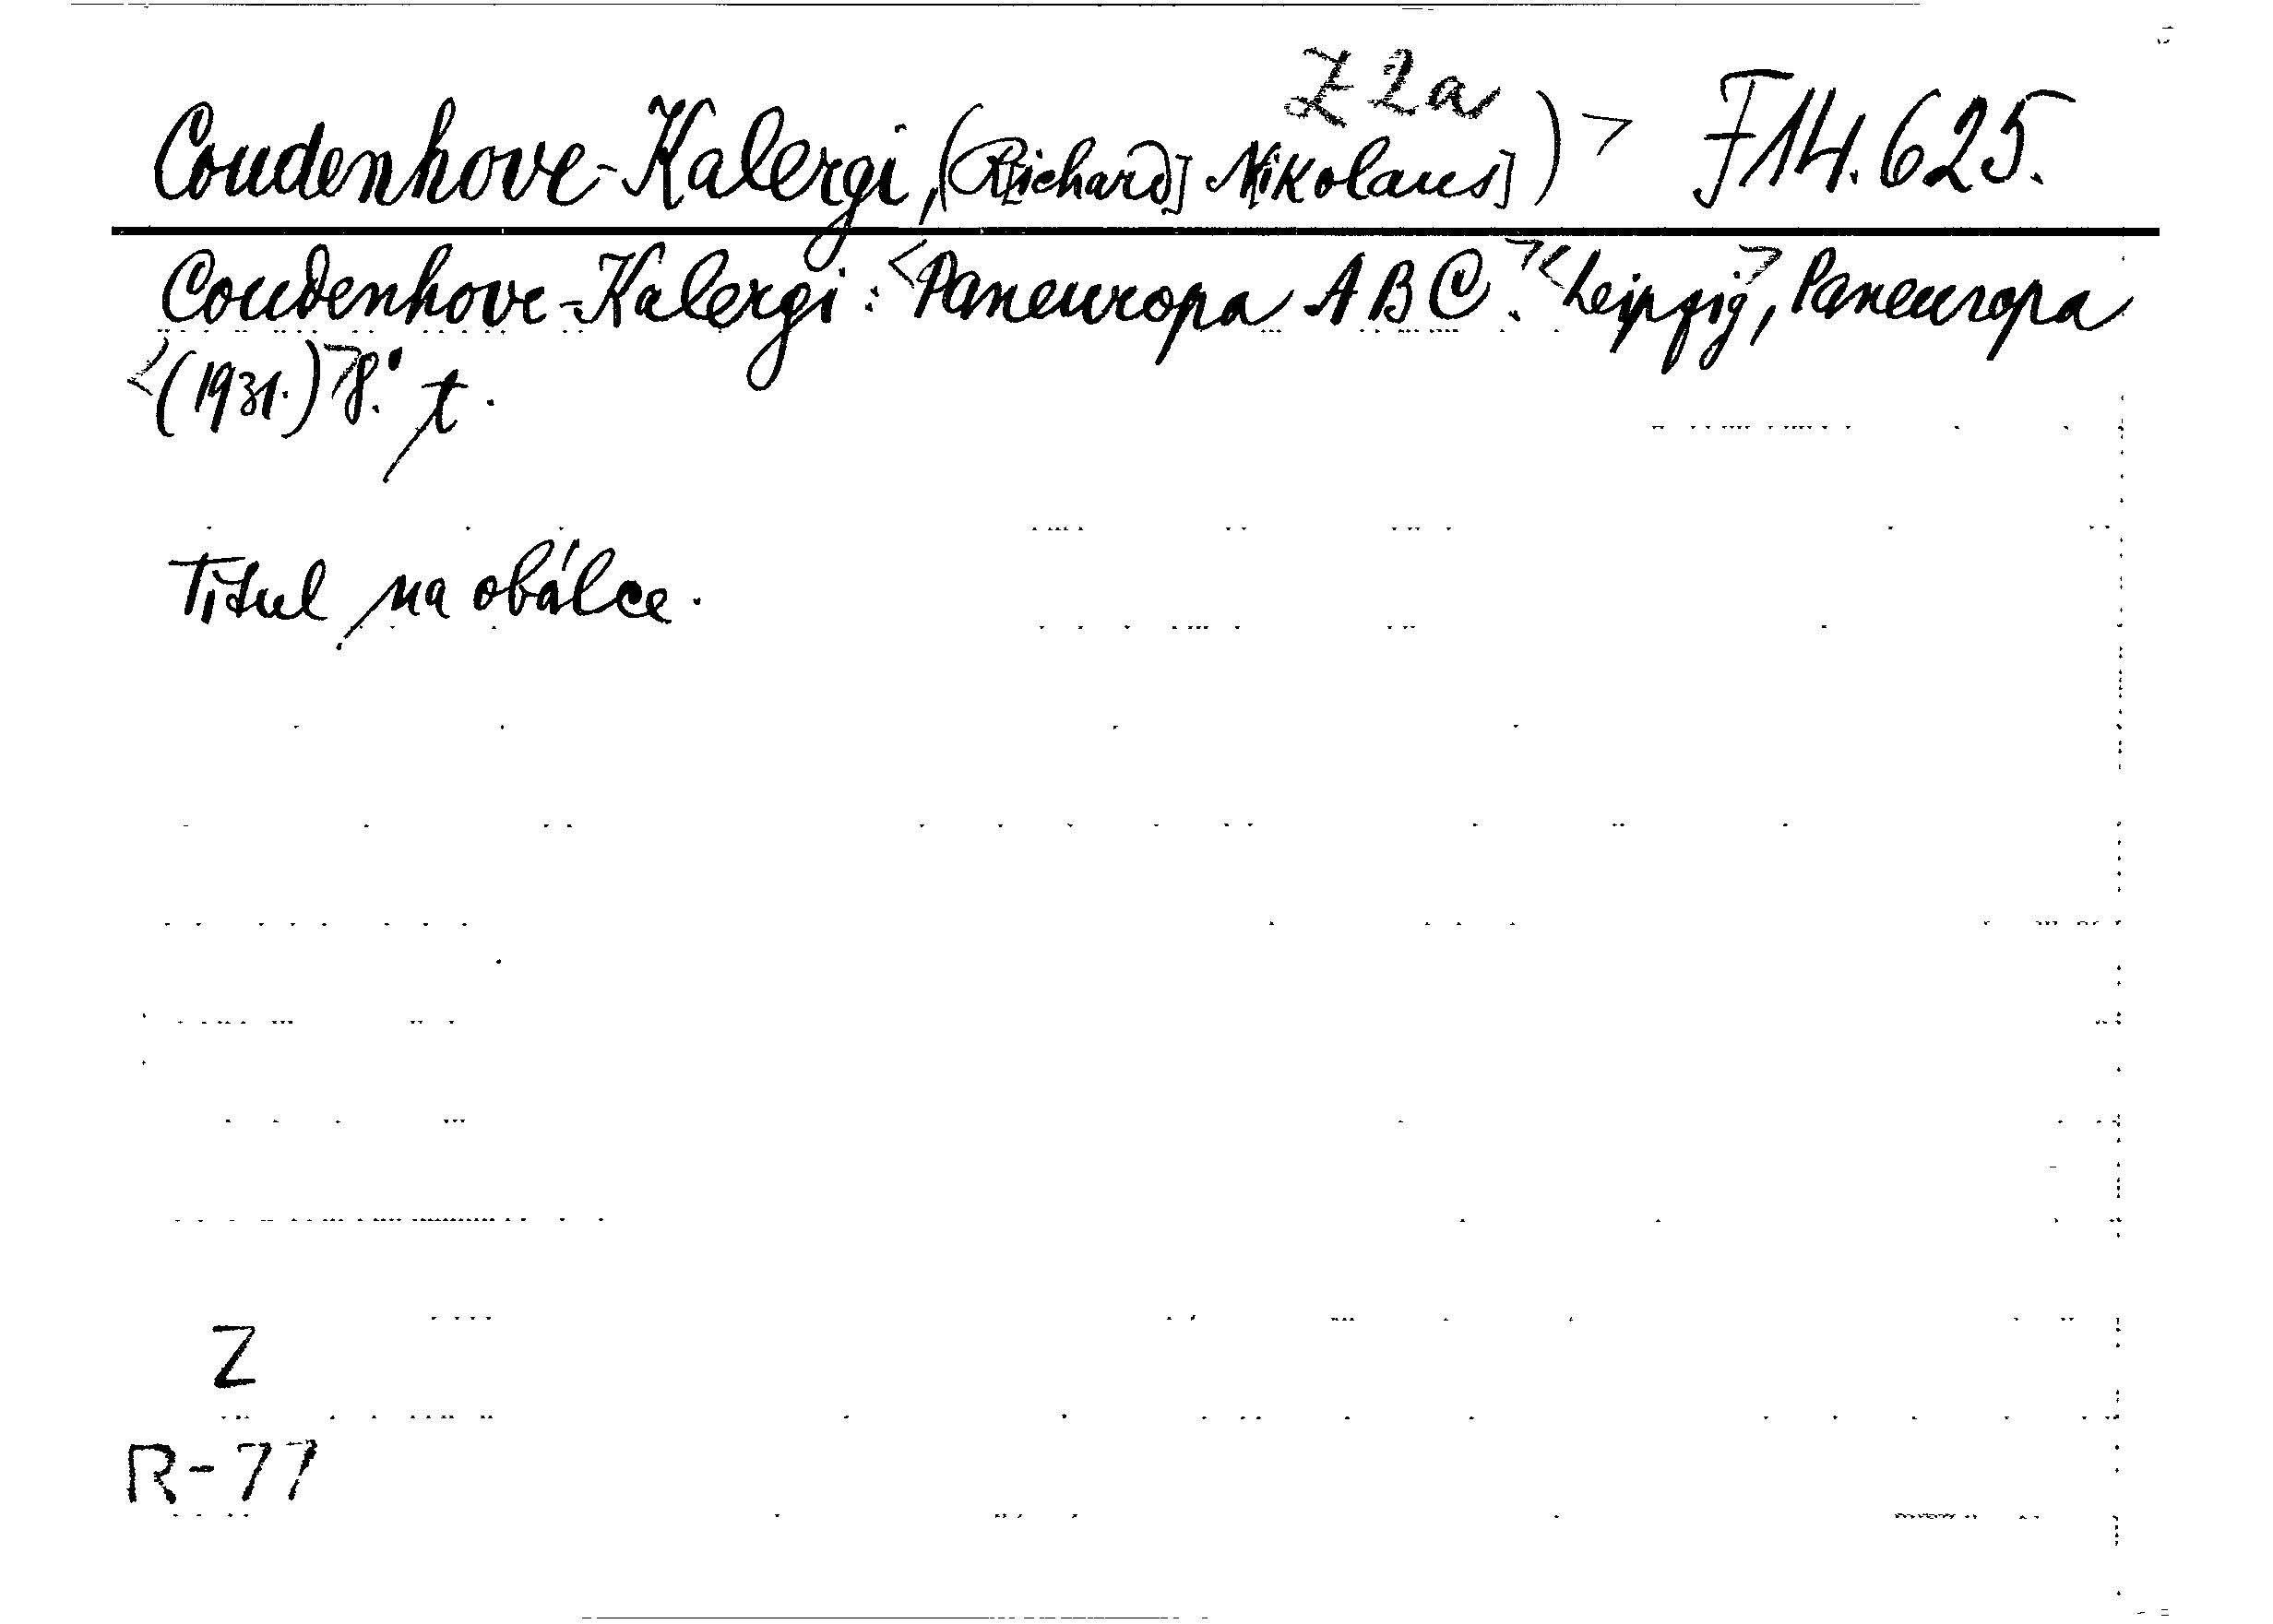 Z 2a
Coudenhove-Kalergi, (R[ichard] N[ikolaus]) > F 14.625.
Coudenhove-Kalergi: <Paneuropa ABC.> <Leipzig>, Paneuropa
<(1931.)> 8.° t.
Titul na obálce.
Z
R-77